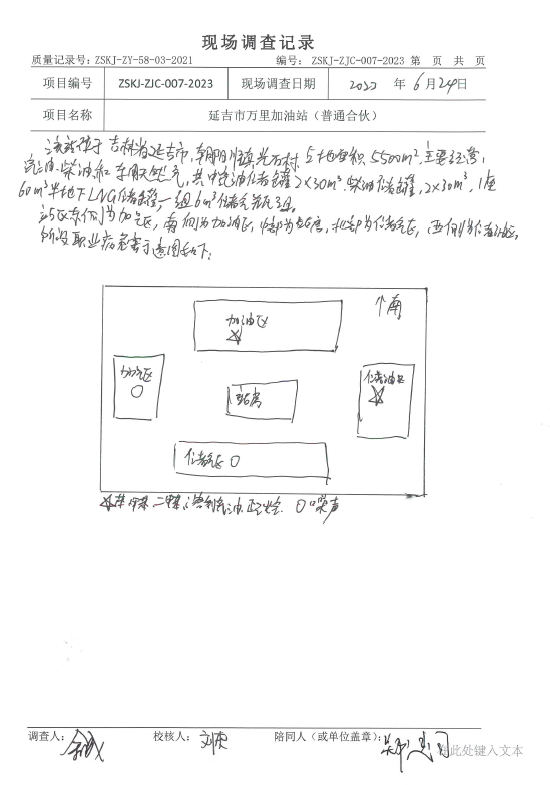 现场调查记录
质量记录号：ZSKJ-ZY-58-03-2021 编号：ZSKJ-ZJC-007-2023 第 页 共 页
项目编号 ZSKJ-ZJC-007-2023 现场调查日期 年 6月24日
项目名称 延吉市万里加油站（普通合伙）
该站位于吉林省延吉市，朝阳川镇光石村，占地面积5500m²，主要经营，
汽油、柴油和车用天然气，其中汽油储罐2×30m³，柴油储罐，2×30m³，1座
60m³半地下LNG储罐，一组6m³储气瓶组。
站区东侧为加气区，南侧为加油区，中部为站房，北部为储气区，西侧为储油区。
职业病危害示意图如下：
↑南
加油区
☆
加气区 储油区
○ 站房 ☆
储气区 ○
☆苯 甲苯 二甲苯 溶剂汽油 正己烷 ○噪声
调查人： 校核人： 陪同人（或单位盖章）：
在此处键入文本